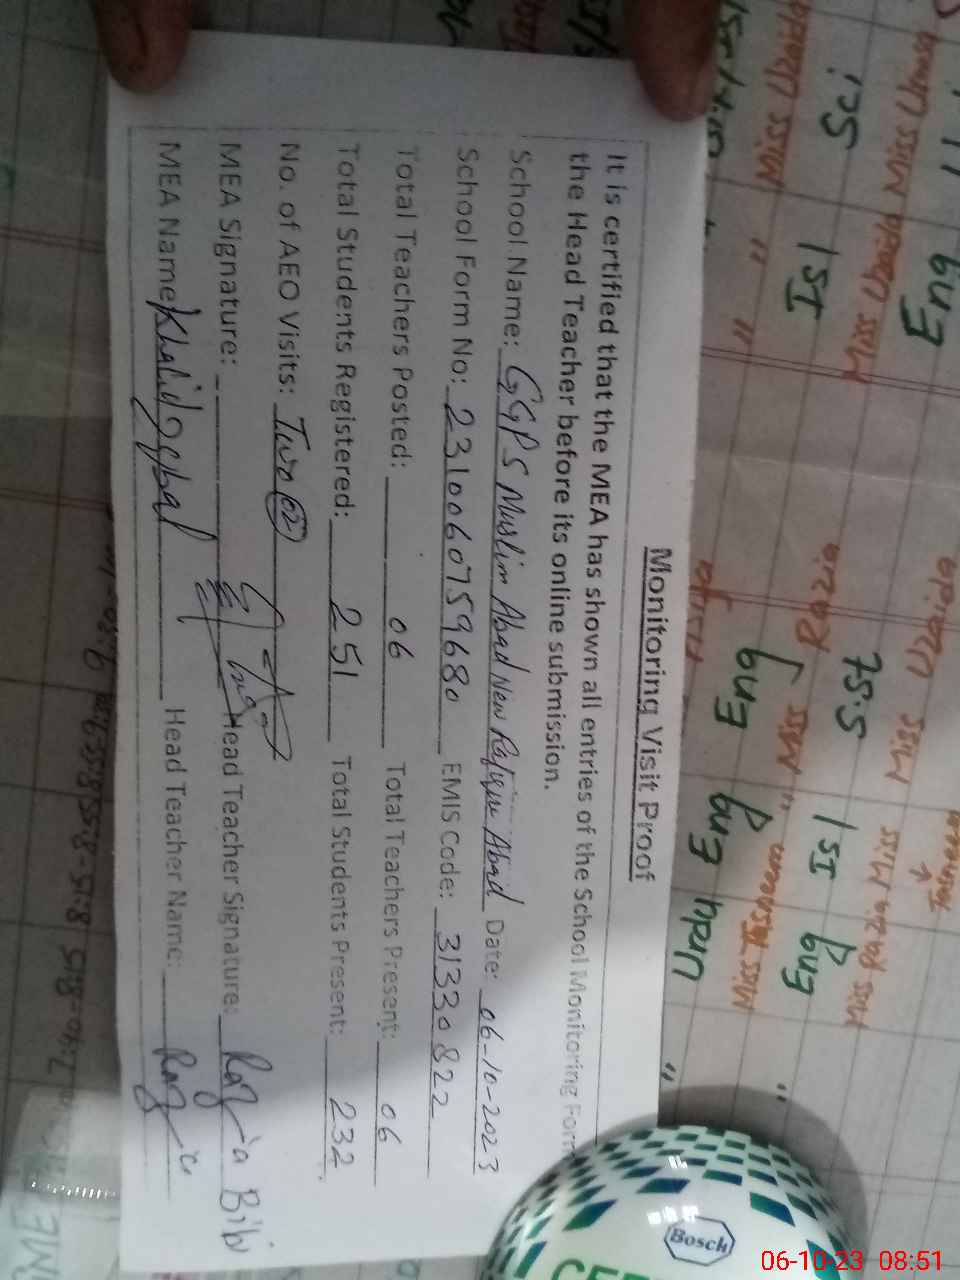 Monitoring Visit Proof
It is certified that the MEA has shown all entries of the School Monitoring Form
the Head Teacher before its online submission.
School Name: GGPS Muslim Abad New Rafique Abad Date: 06-10-2023
School Form No: 2310060759680 EMIS Code: 31330822
Total Teachers Posted: 06 Total Teachers Present: 06
Total Students Registered: 251 Total Students Present: 232
No. of AEO Visits: Two 02
MEA Signature: Head Teacher Signature: Razia Bibi
MEA Name Khalid Iqbal Head Teacher Name: Razia
Miss Uzaida
Sci
Miss Uzaida Miss Uzma
Isl
Eng
Eng
Miss Razia
S.St
Miss Uzaida
Urdu Eng
Miss Tasneem
Eng Isl
Miss Razia Miss
Tasneem
7:40-8:15 8:15-8:55
Bosch
06-10-23 08:51